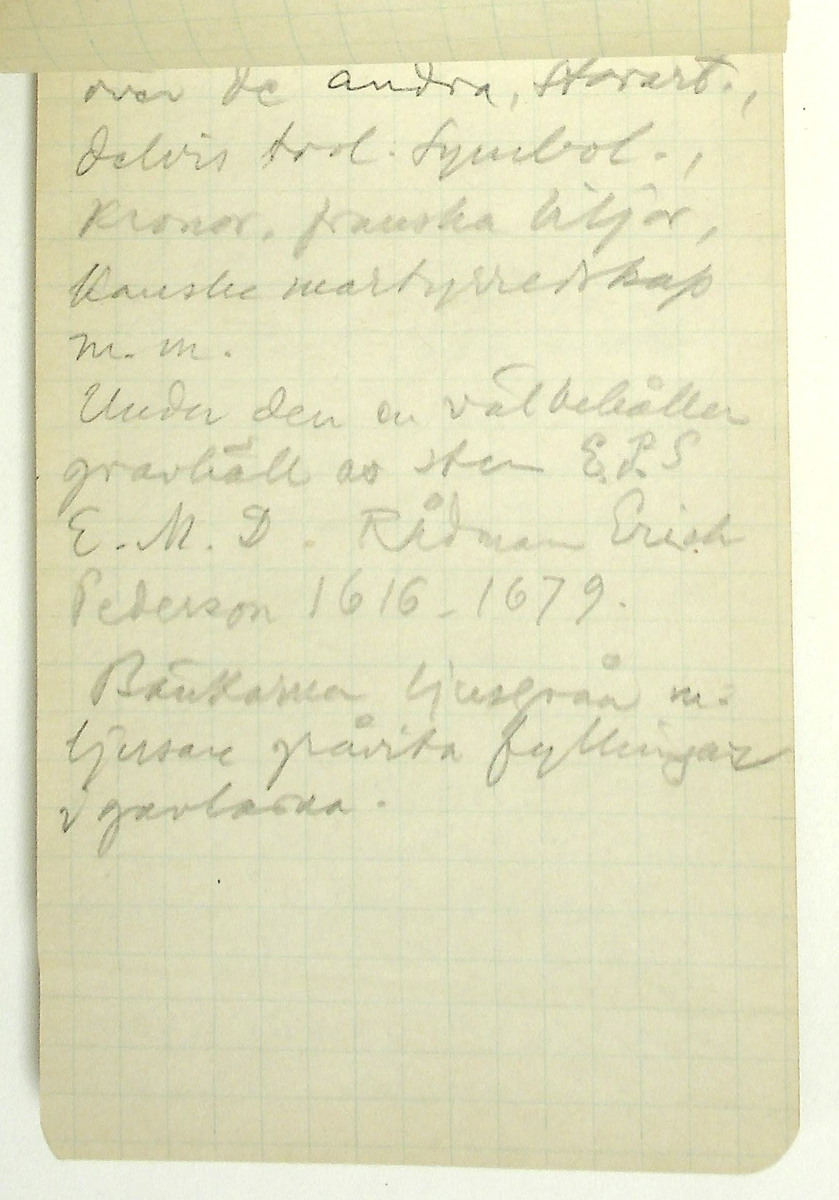 över de andra, stavart.,
delvis trol. Symbol.,
kronor, franska liljor,
kanske martyrredskap
m. m.
Under den en välbehållen
gravhäll av sten E.P.S
E. M. D. Rådman Erich
Pederson 1616-1679.
Bänkarna ljusgråa m.
ljusare gråvita fyllningar
i gavlarna.